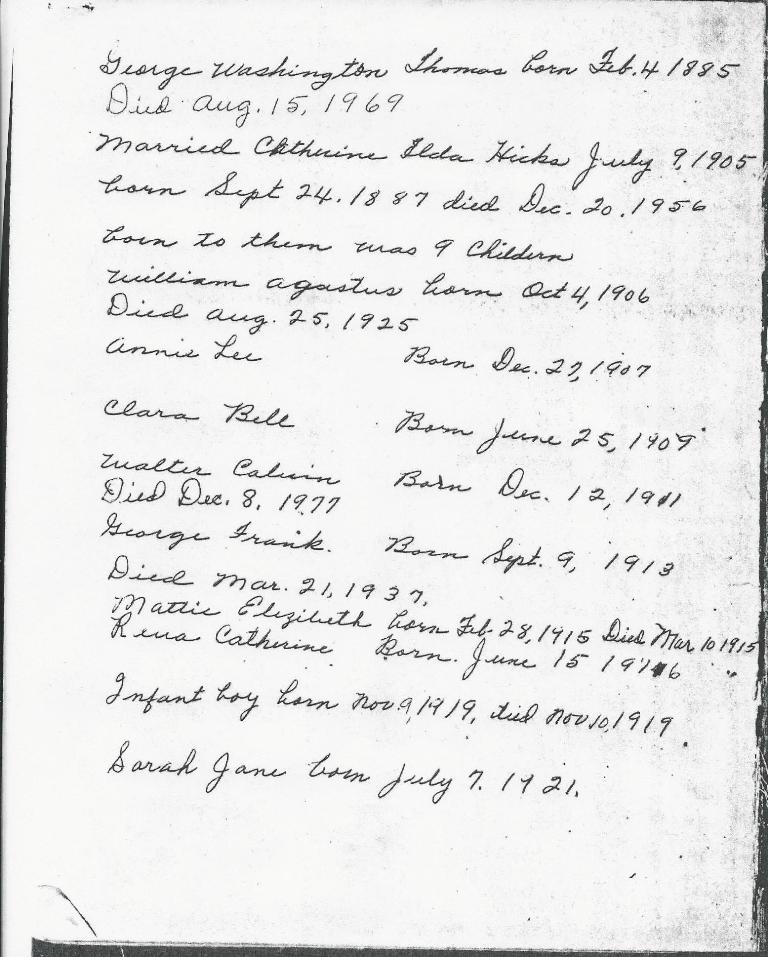 George Washington Thomas born Feb. 4 1885
Died Aug. 15, 1969
Married Cktherine Ilda Hicks July 9, 1905
born Sept 24. 1887 died Dec. 20. 1956
born to them was 9 Childern
William agastus born Oct 4, 1906
Died Aug. 25, 1925
Annie Lee Born Dec. 27, 1907
Clara Bell Born June 25, 1909
Walter Calvin Born Dec. 12, 1911
Died Dec. 8, 1977
George Frank. Born Sept. 9, 1913
Died Mar. 21, 1937,
Mattie Elezibeth born Feb. 28, 1915 Died Mar 10 1915
Rena Catherine Born. June 15 1916
Infant boy born Nov 9, 1919, died Nov 10, 1919
Sarah Jane born July 7. 1921.